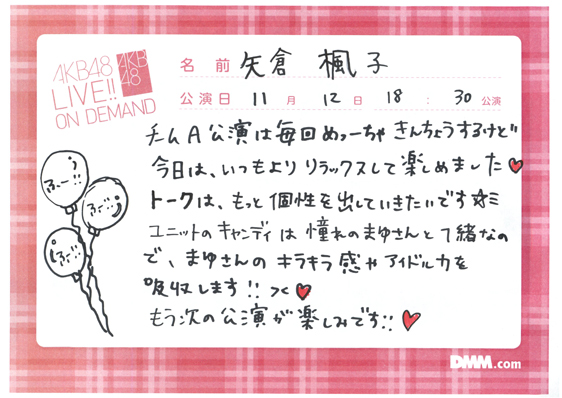 AKB48
LIVE!!
ON DEMAND
AKB
48
名 前 矢倉 楓子
公演日 11 月 12 日 18 : 30 公演
チームA公演は毎回めっーちゃきんちょうするけど
今日は、いつもよりリラックスして楽しめました♥
トークは、もっと個性を出していきたいです☆ミ
ユニットのキャンディは憧れのまゆさんと一緒なの
で、まゆさんのキラキラ感やアイドル力を
吸収します!! ♥
もう次の公演が楽しみです!! ♥
DMM.com